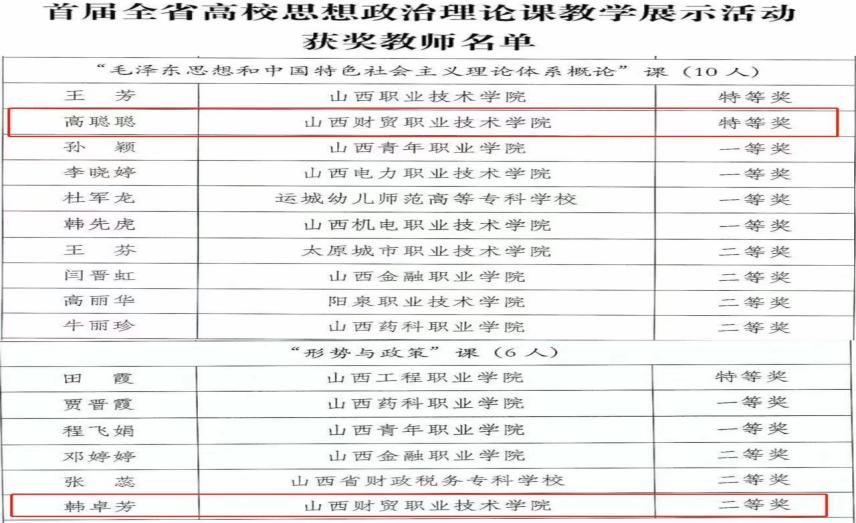 首届全省高校思想政治理论课教学展示活动
获奖教师名单
“毛泽东思想和中国特色社会主义理论体系概论”课（10人）
王 芳 山西职业技术学院 特等奖
高聪聪 山西财贸职业技术学院 特等奖
孙 颖 山西青年职业学院 一等奖
李晓婷 山西电力职业技术学院 一等奖
杜军龙 运城幼儿师范高等专科学校 一等奖
韩先虎 山西机电职业技术学院 一等奖
王 芬 太原城市职业技术学院 二等奖
闫晋虹 山西金融职业学院 二等奖
高丽华 阳泉职业技术学院 二等奖
牛丽珍 山西药科职业学院 二等奖
“形势与政策”课（6人）
田 霞 山西工程职业学院 特等奖
贾晋霞 山西药科职业学院 一等奖
程飞娟 山西青年职业学院 一等奖
邓婷婷 山西金融职业学院 二等奖
张 蕊 山西省财政税务专科学校 二等奖
韩卓芳 山西财贸职业技术学院 二等奖